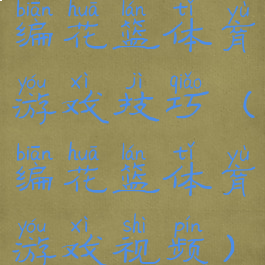 biān huā lán tǐ yù
编花篮体育
yóu xì jì qiǎo
游戏技巧（
biān huā lán tǐ yù
编花篮体育
yóu xì shì pín
游戏视频）